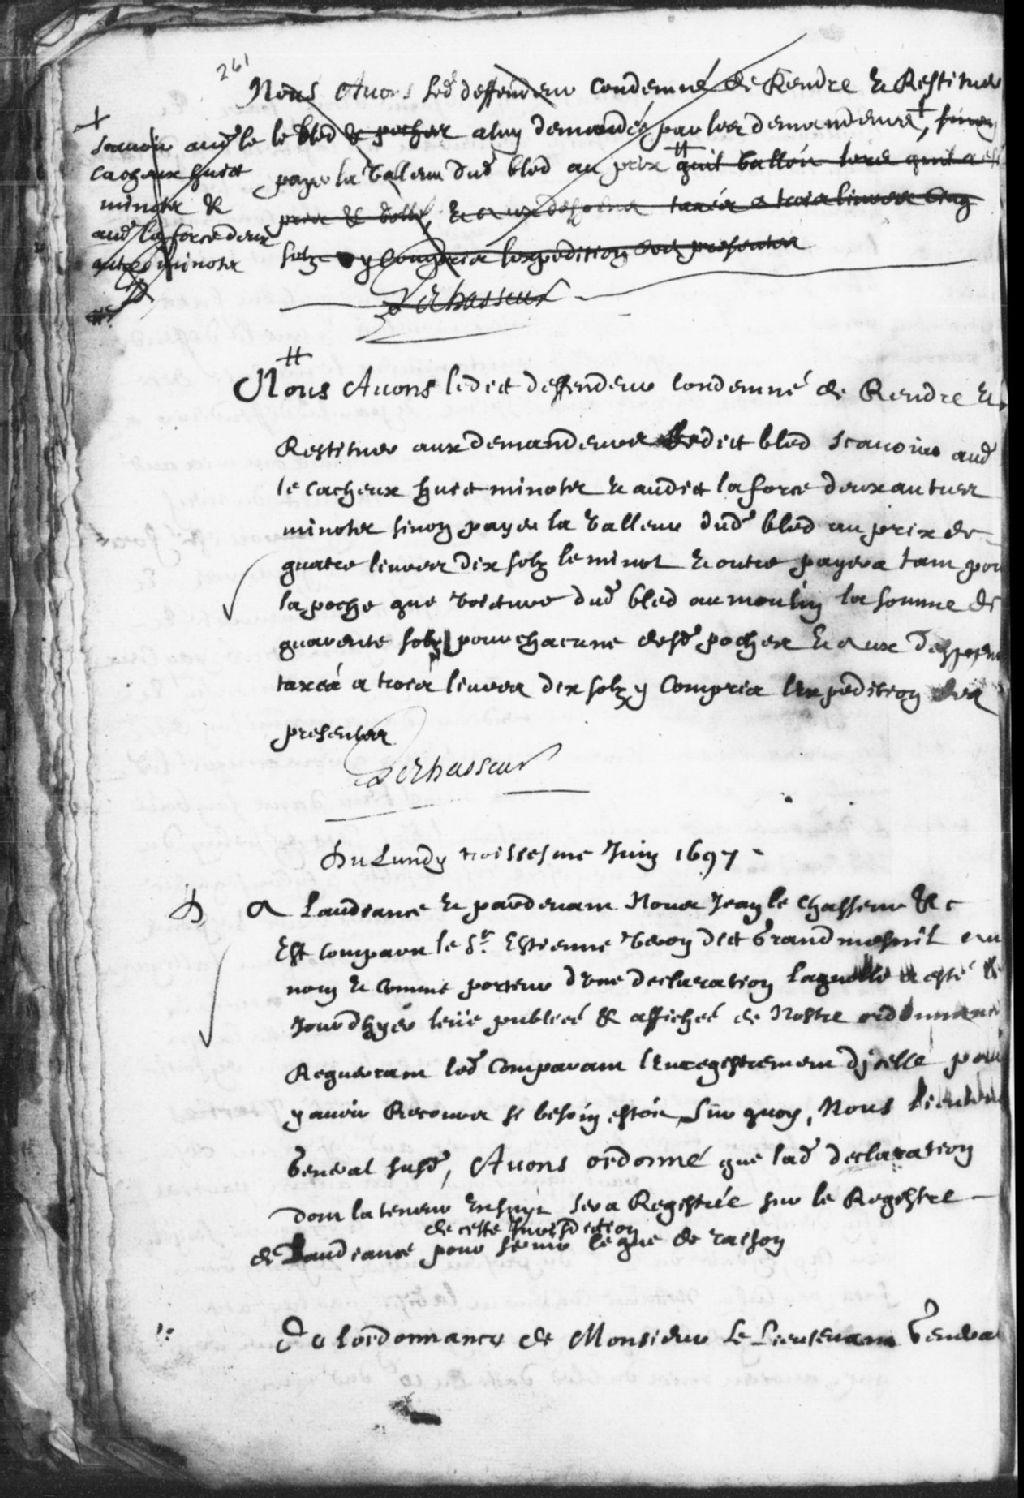 261
Nous Avons led deffendeur condemné de Rendre & Restituer
le bled & poches a luy demandés par les demandeurs, sinon
paye la valleur dud bled au prix quil valloit lors quil a esté
pris & vollé, & aux despens taxés a trois livres cinq
solz y compris lexpedition des presentes
LeChasseur
+
scavoir aud le
cacheux huict
minots &
aud laforce deux
autres minots
Nous Avons ledict deffendeur Condemné de Rendre &
Restituer aux demandeurs ledict bled scavoir aud
le cacheux huict minots & audict laforce deux autres
minots sinon payer la valleur dud bled au prix de
quatre livres dix solz le minot & outre payera tam pour
la poche que voiture dud bled au moulin la somme de
quarente solz pour chacune desd poches & aux Despens
taxés a trois livres dix solz y Compris lexpedition des
presentes
LeChasseur
Du Lundy troissesme Juin 1697
A Laudiance & pardevant Nous Jean le Chasseur &c
Est Comparu le Sr. Estienne Veron dict Grandmesnil au
nom & comme porteur d'une declaration laquelle a esté
Jourdhyer leüe publieé & affichée de Nostre ordonnance
Requerant led Comparant lenregestrement dycelle pour
y avoir Recours si besoin estoit, Sur quoy, Nous Lieutenant
General susd, Avons ordonné que lad declaration
dont la teneur Ensuit sera Registrée sur le Registre
de cette Jurisdiction
de Laudiance pour servir ce que de raison
De lordonnance de Monsieur Le Lieutenant General